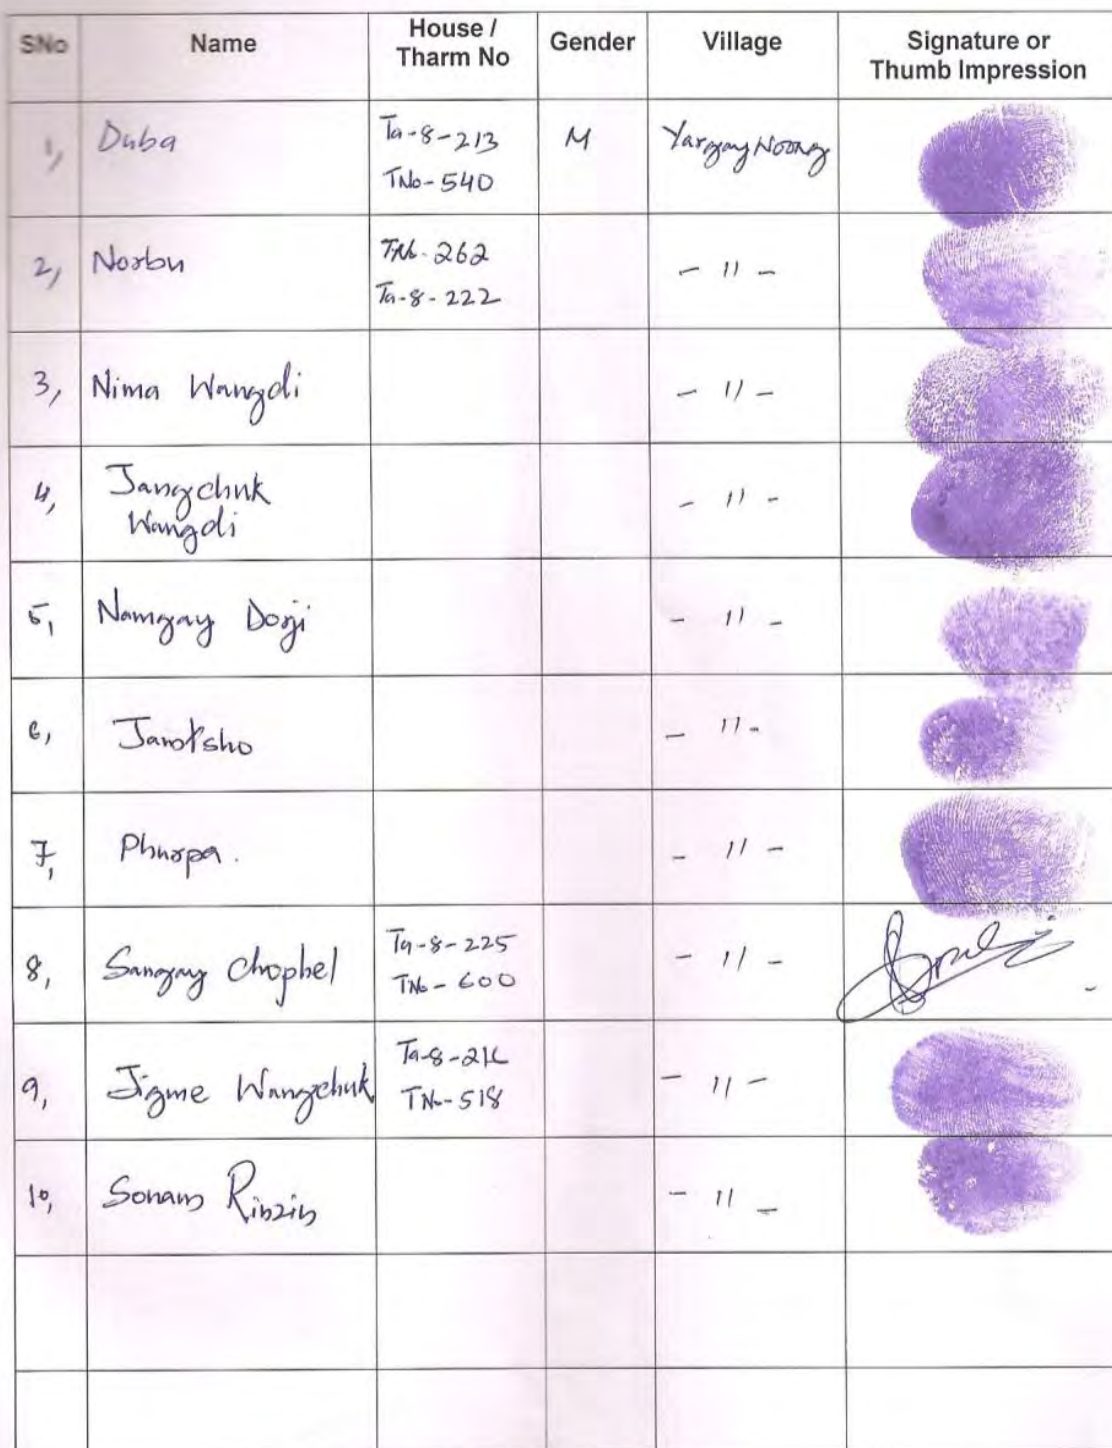 SNo Name House / Tharm No Gender Village Signature or Thumb Impression
1, Duba Ta-8-213 M Yargay Noong
TNo-540
2, Norbu TNo-262 - 11 -
Ta-8-222
3, Nima Wangdi - 11 -
4, Jangchuk - 11 -
Wangdi
5, Namgay Dorji - 11 -
6, Jamotsho - 11 -
7, Phurpa. - 11 -
8, Sangay Chophel Ta-8-225 - 11 -
TNo-600
9, Jigme Wangchuk Ta-8- - 11 -
TNo-518
10, Sonam Rinzin - 11 -